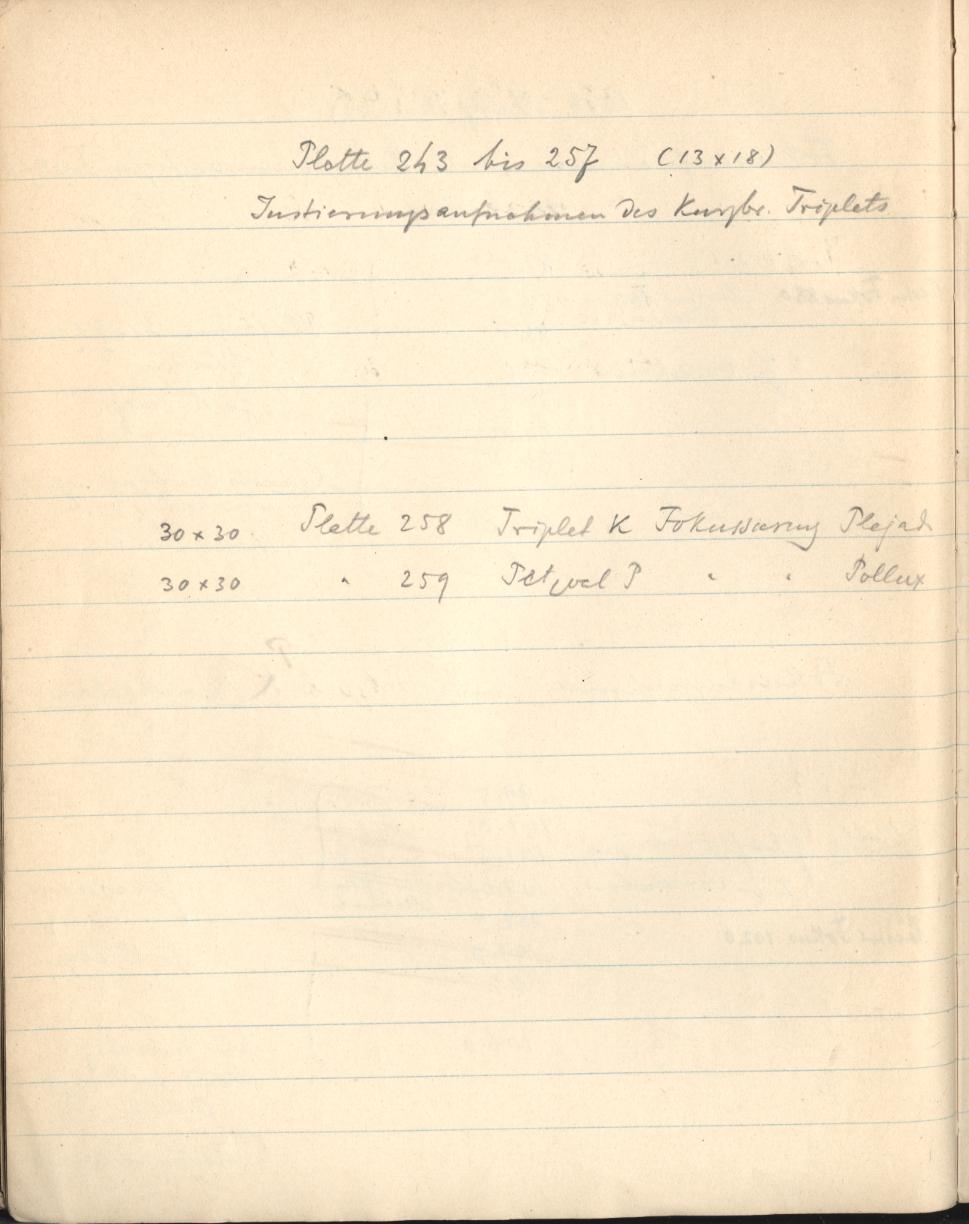 Platte 243 bis 257 (13 x 18)
Justierungsaufnahmen des Kurzbr. Triplets
30 x 30 Platte 258 Triplet K Fokussierung Plejad
30 x 30 " 259 Petzval P " " Pollux